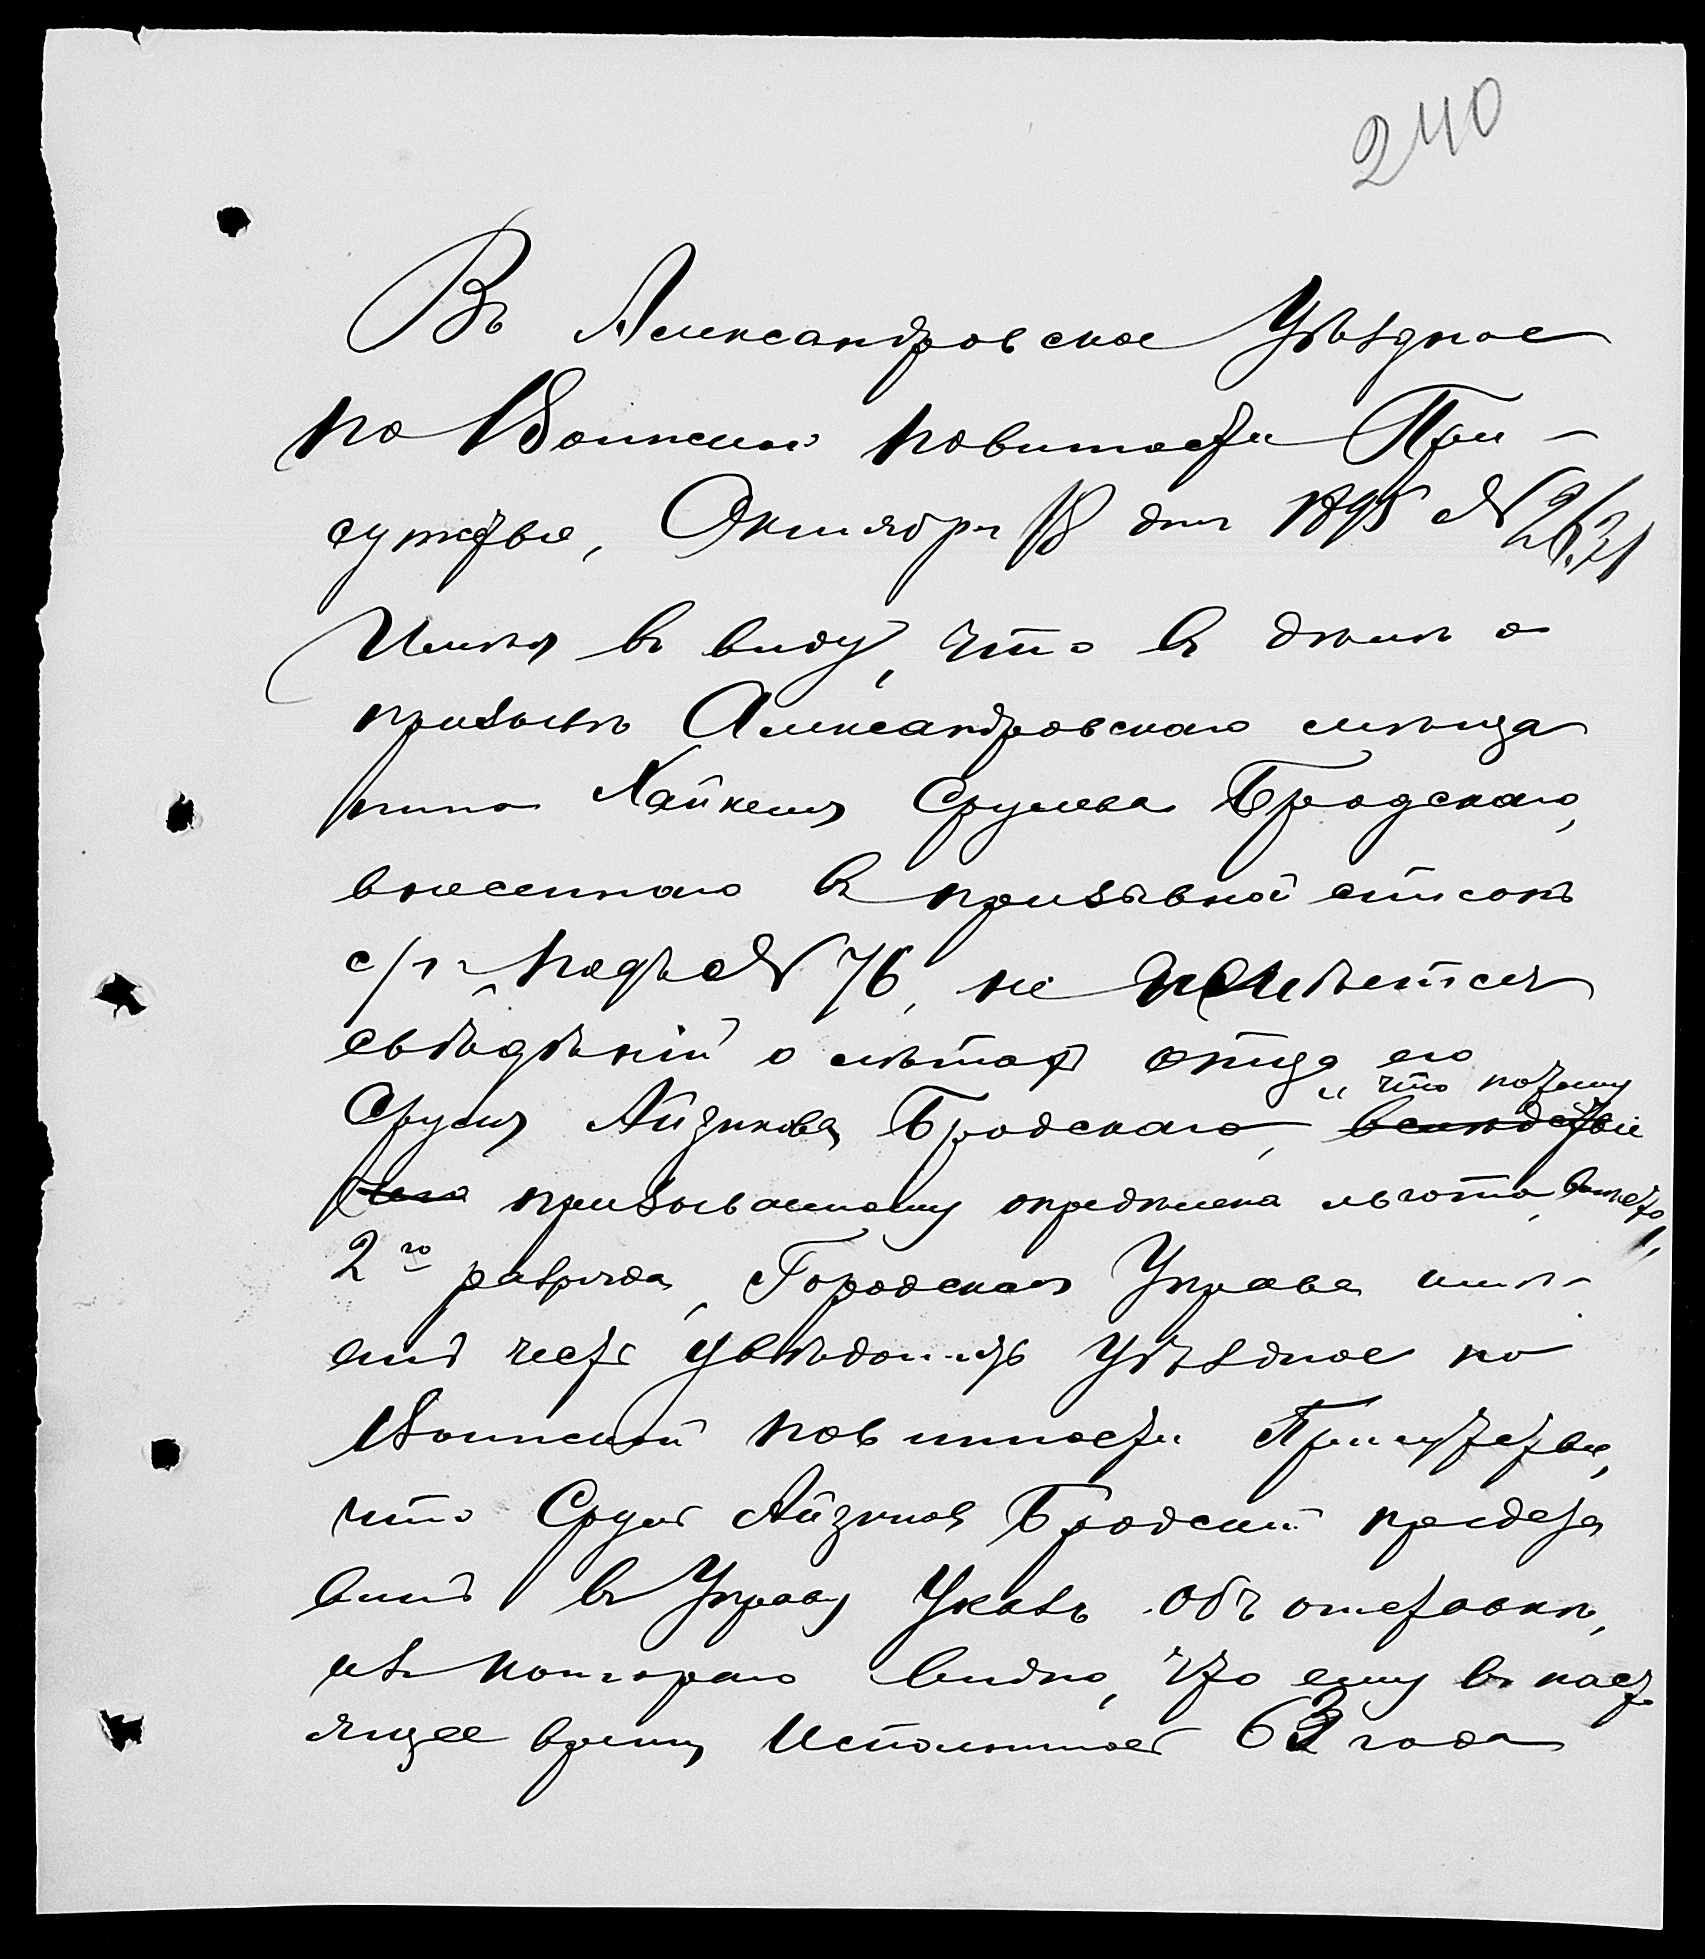 240
Въ Александровское Уѣздное
по Воинской повинности При-
сутствіе, Октября 18 дня 1895 №
Имѣя въ виду, что въ дѣлѣ о
призывѣ Александровскаго мѣща
нина Хайкеля Срулева Бродскаго,
внесеннаго въ призывной списокъ
подъ № 76, не имѣется
свѣдѣній о лѣтахъ отца его
и что потому
Сруля Айзикова Бродскаго, вслѣдствіе
чего призываемому опредѣлена льгота вмѣсто
2го разряда, Городская Управа имѣ-
етъ честь увѣдомить Уѣздное по
Воинской повинности Присутствіе,
что Сруль Айзиковъ Бродскій предста
вилъ въ Управу Указъ объ отставкѣ,
изъ котораго видно, что ему въ наст
ящее время исполнилось 63 года